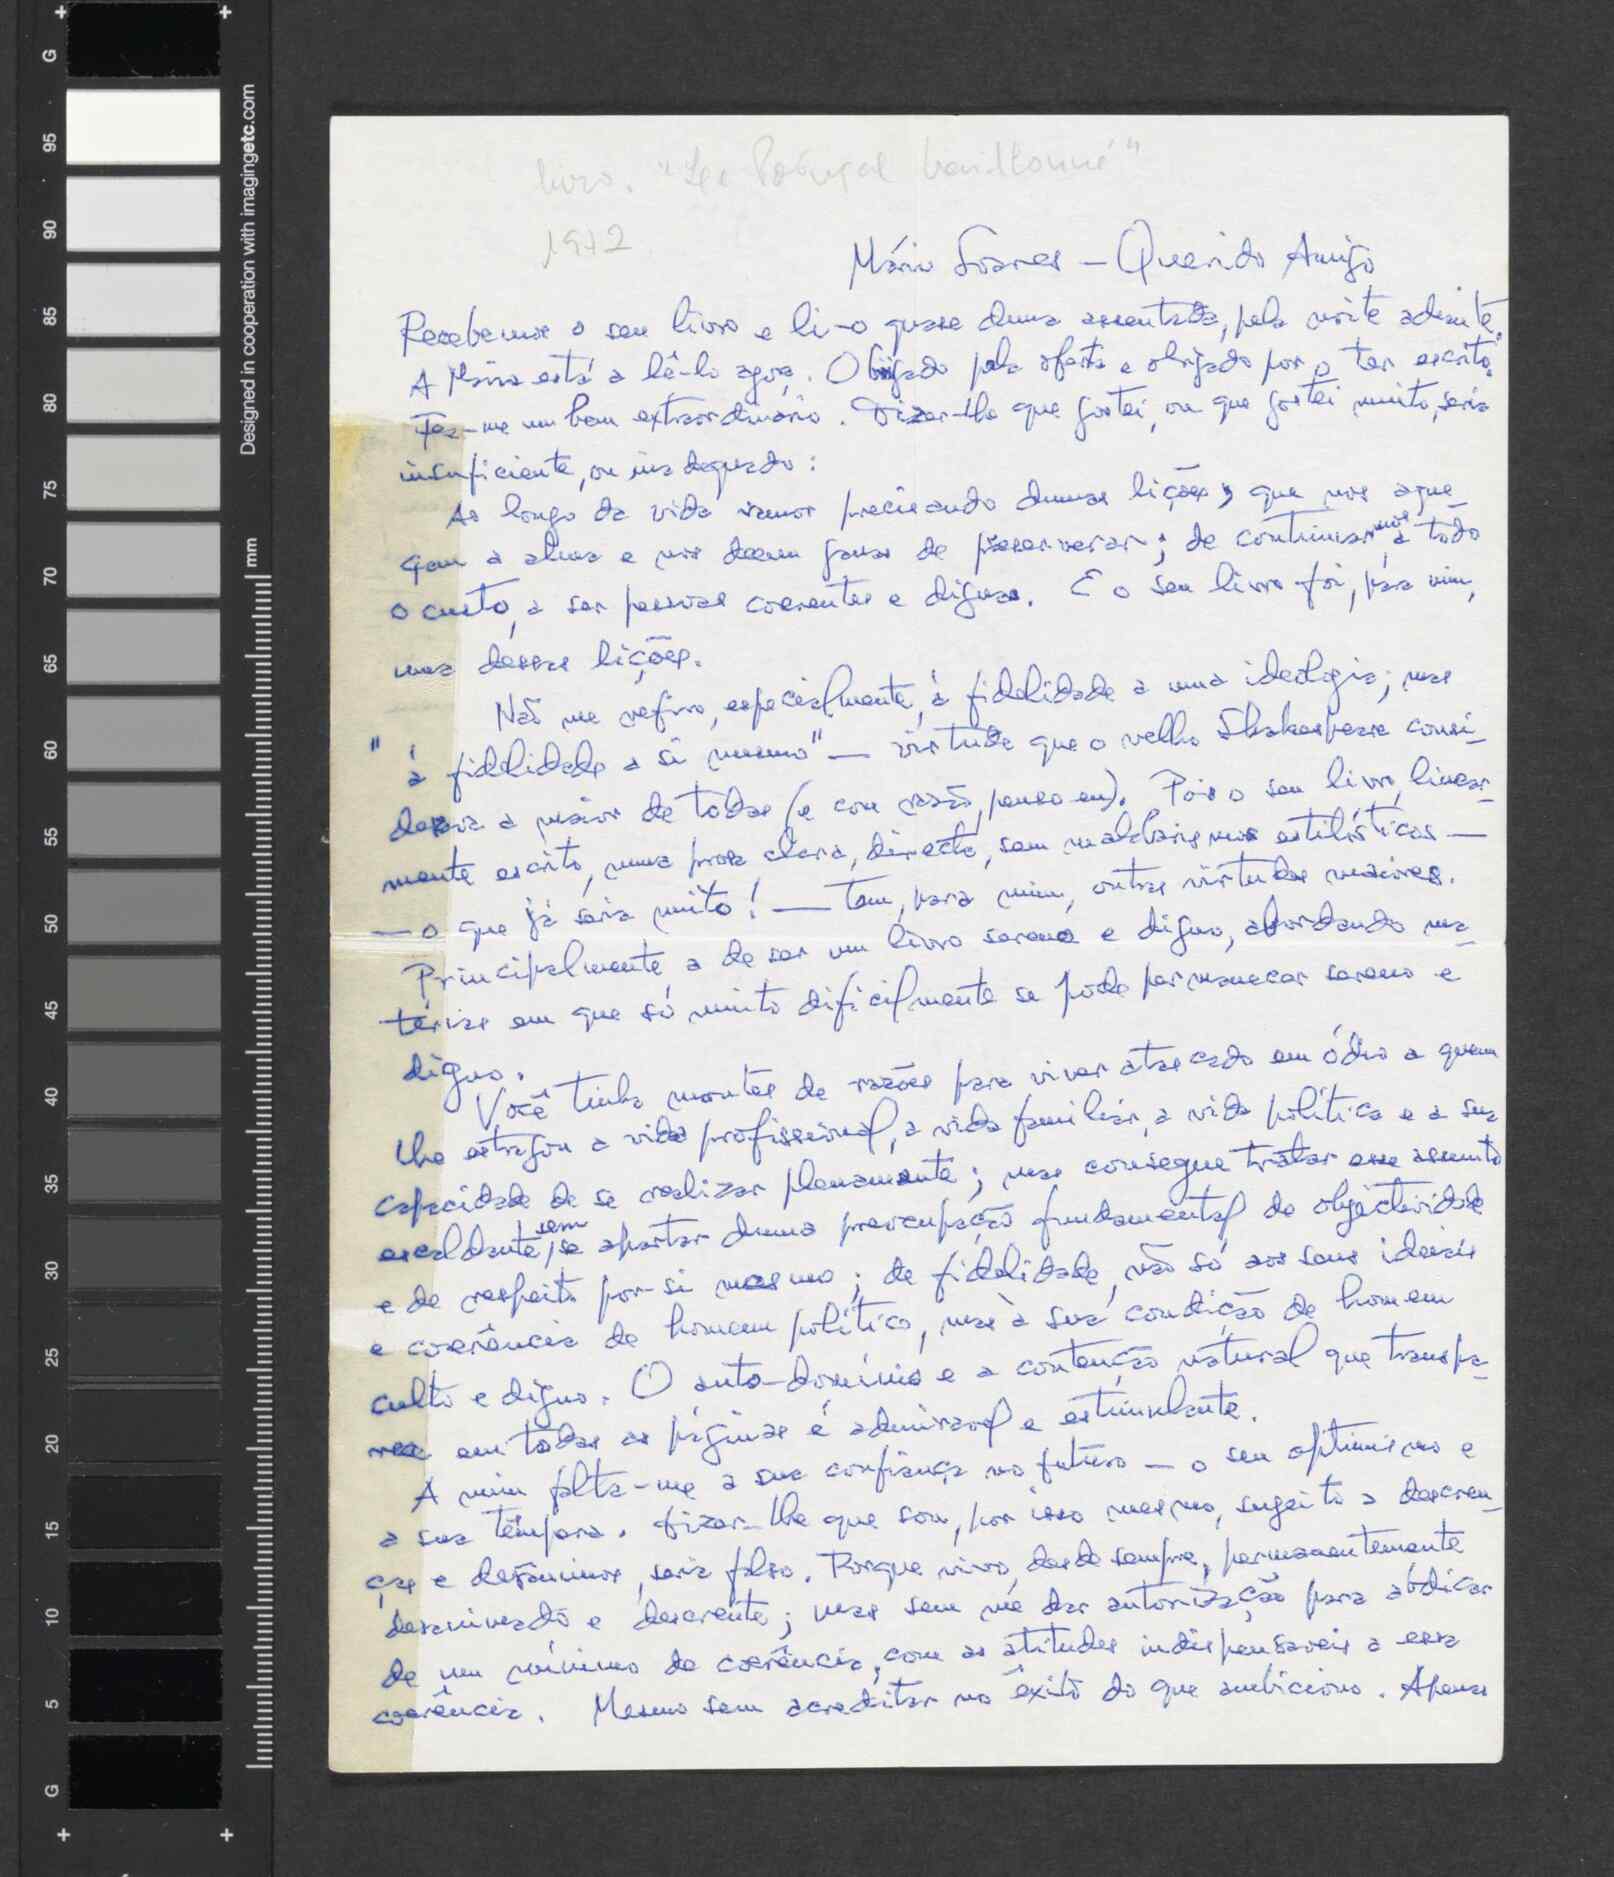 livro. "Le Portugal baillonné"
1972
Mário Soares — Querido Amigo
Recebemos o seu livro e li-o quase duma assentada, pela noite adiante.
A Maria está a lê-lo agora. Obrigado pela oferta e obrigado por o ter escrito.
Fez-me um bem extraordinário. Dizer-lhe que gostei, ou que gostei muito, seria
insuficiente, ou inadequado:
Ao longo da vida vamos precisando dumas lições, que nos aque-
çam a alma e nos deem ganas de perseverar; de continuarmos, a todo
o custo, a ser pessoas coerentes e dignas. E o seu livro foi, para mim,
uma dessas lições.
Não me refiro, especialmente, à fidelidade a uma ideologia; mas
"à fidelidade a si mesmo" — virtude que o velho Shakespeare consi-
derava a maior de todas (e com razão, penso eu). Pois o seu livro, linear-
mente escrito, numa prosa clara, directa, sem malabarismos estilísticos —
— o que já seria muito! — tem, para mim, outras virtudes maiores.
Principalmente, a de ser um livro sereno e digno, abordando ma-
térias em que só muito dificilmente se pode permanecer sereno e
digno.
Você tinha montes de razões para viver atascado em ódio a quem
lhe estragou a vida profissional, a vida familiar, a vida política e a sua
capacidade de se realizar plenamente; mas consegue tratar esse assunto
escaldante, sem se apartar duma preocupação fundamental de objectividade
e de respeito por si mesmo; de fidelidade, não só aos seus ideais
e coerência de homem político, mas à sua condição de homem
culto e digno. O auto-domínio e a contenção natural que transpa-
rece em todas as páginas é admirável e estimulante.
A mim falta-me a sua confiança no futuro — o seu optimismo e
a sua têmpera. Dizer-lhe que sou, por isso mesmo, sujeito a descren-
ças e desânimos, seria falso. Porque vivo, desde sempre, permanentemente
desanimado e descrente; mas sem me dar autorização para abdicar
de um mínimo de coerência, com as atitudes indispensáveis a essa
coerência. Mesmo sem acreditar no êxito do que ambiciono. Apenas
Designed in cooperation with imagingetc.com
mm
G
95
90
85
80
75
70
65
60
55
50
45
40
35
30
25
20
15
10
5
G